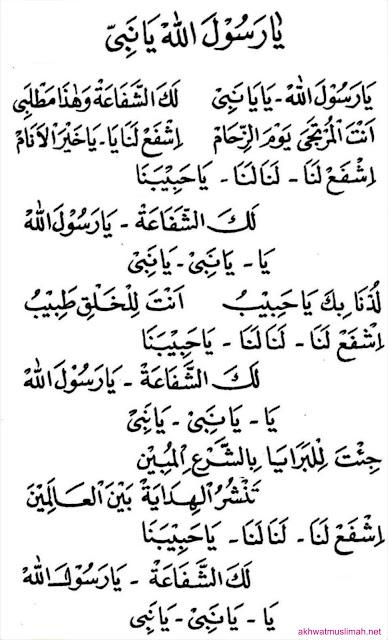 يَارَسُوْلَ اللهْ يَا نَبِيّ
يَارَسُوْلَ اللهْ - يَايَايَا نَبِىْ لَكَ الشَّفَاعَةْ وَهٰذَا مَطْلَبِى
اَنْتَ الْمُرْتَجَى يَوْمَ الزِّحَامْ اِشْفَعْ لَنَا يَا - يَاخَيْرَ الْاَنَامْ
اِشْفَعْ لَنَا - لَنَا لَنَا - يَاحَبِيْبَنَا
لَكَ الشَّفَاعَةْ - يَارَسُوْلَ اللهْ
يَا - يَانَبِىْ - يَانَبِىْ
لُذْنَا بِكَ يَاحَبِيْبُ اَنْتَ لِلْخَلْقِ طَبِيْبُ
اِشْفَعْ لَنَا - لَنَا لَنَا - يَاحَبِيْبَنَا
لَكَ الشَّفَاعَةْ - يَارَسُوْلَ اللهْ
يَا - يَانَبِىْ - يَانَبِىْ
جِئْتَ لِلْبَرَايَا بِالشَّرْعِ الْمُبِيْنْ
تَنْشُرُ الْهِدَايَةْ بَيْنَ الْعَالَمِيْنْ
اِشْفَعْ لَنَا - لَنَا لَنَا - يَاحَبِيْبَنَا
لَكَ الشَّفَاعَةْ - يَارَسُوْلَ اللهْ
يَا - يَانَبِىْ - يَانَبِىْ
akhwatmuslimah.net